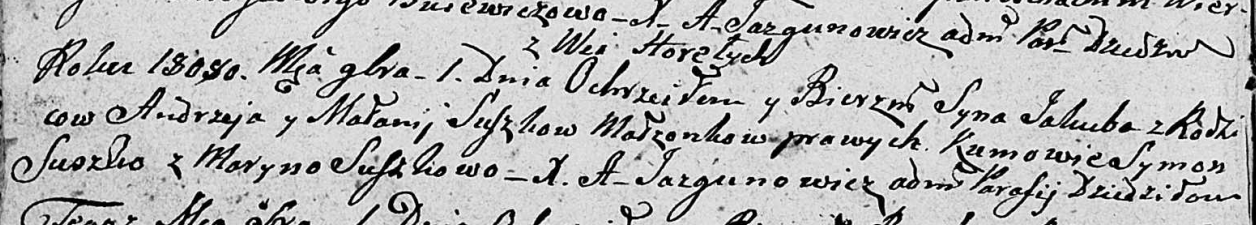 Busiewiczowo – X – A – Jazgunowicz adm Par Dziedził
z Wsi Horełych
Roku 1808o. Mca 9bra – 1. Dnia Ochrzciłem y Bierzm Syna Jakuba z Rodzi
cow Andrzeja y Małanij Suszkow Małzonkow prawych. Kumowie Symon
Suszko z Maryno Suszkowo – X. A – Jazgunowicz adm Parafij Dziedziłow